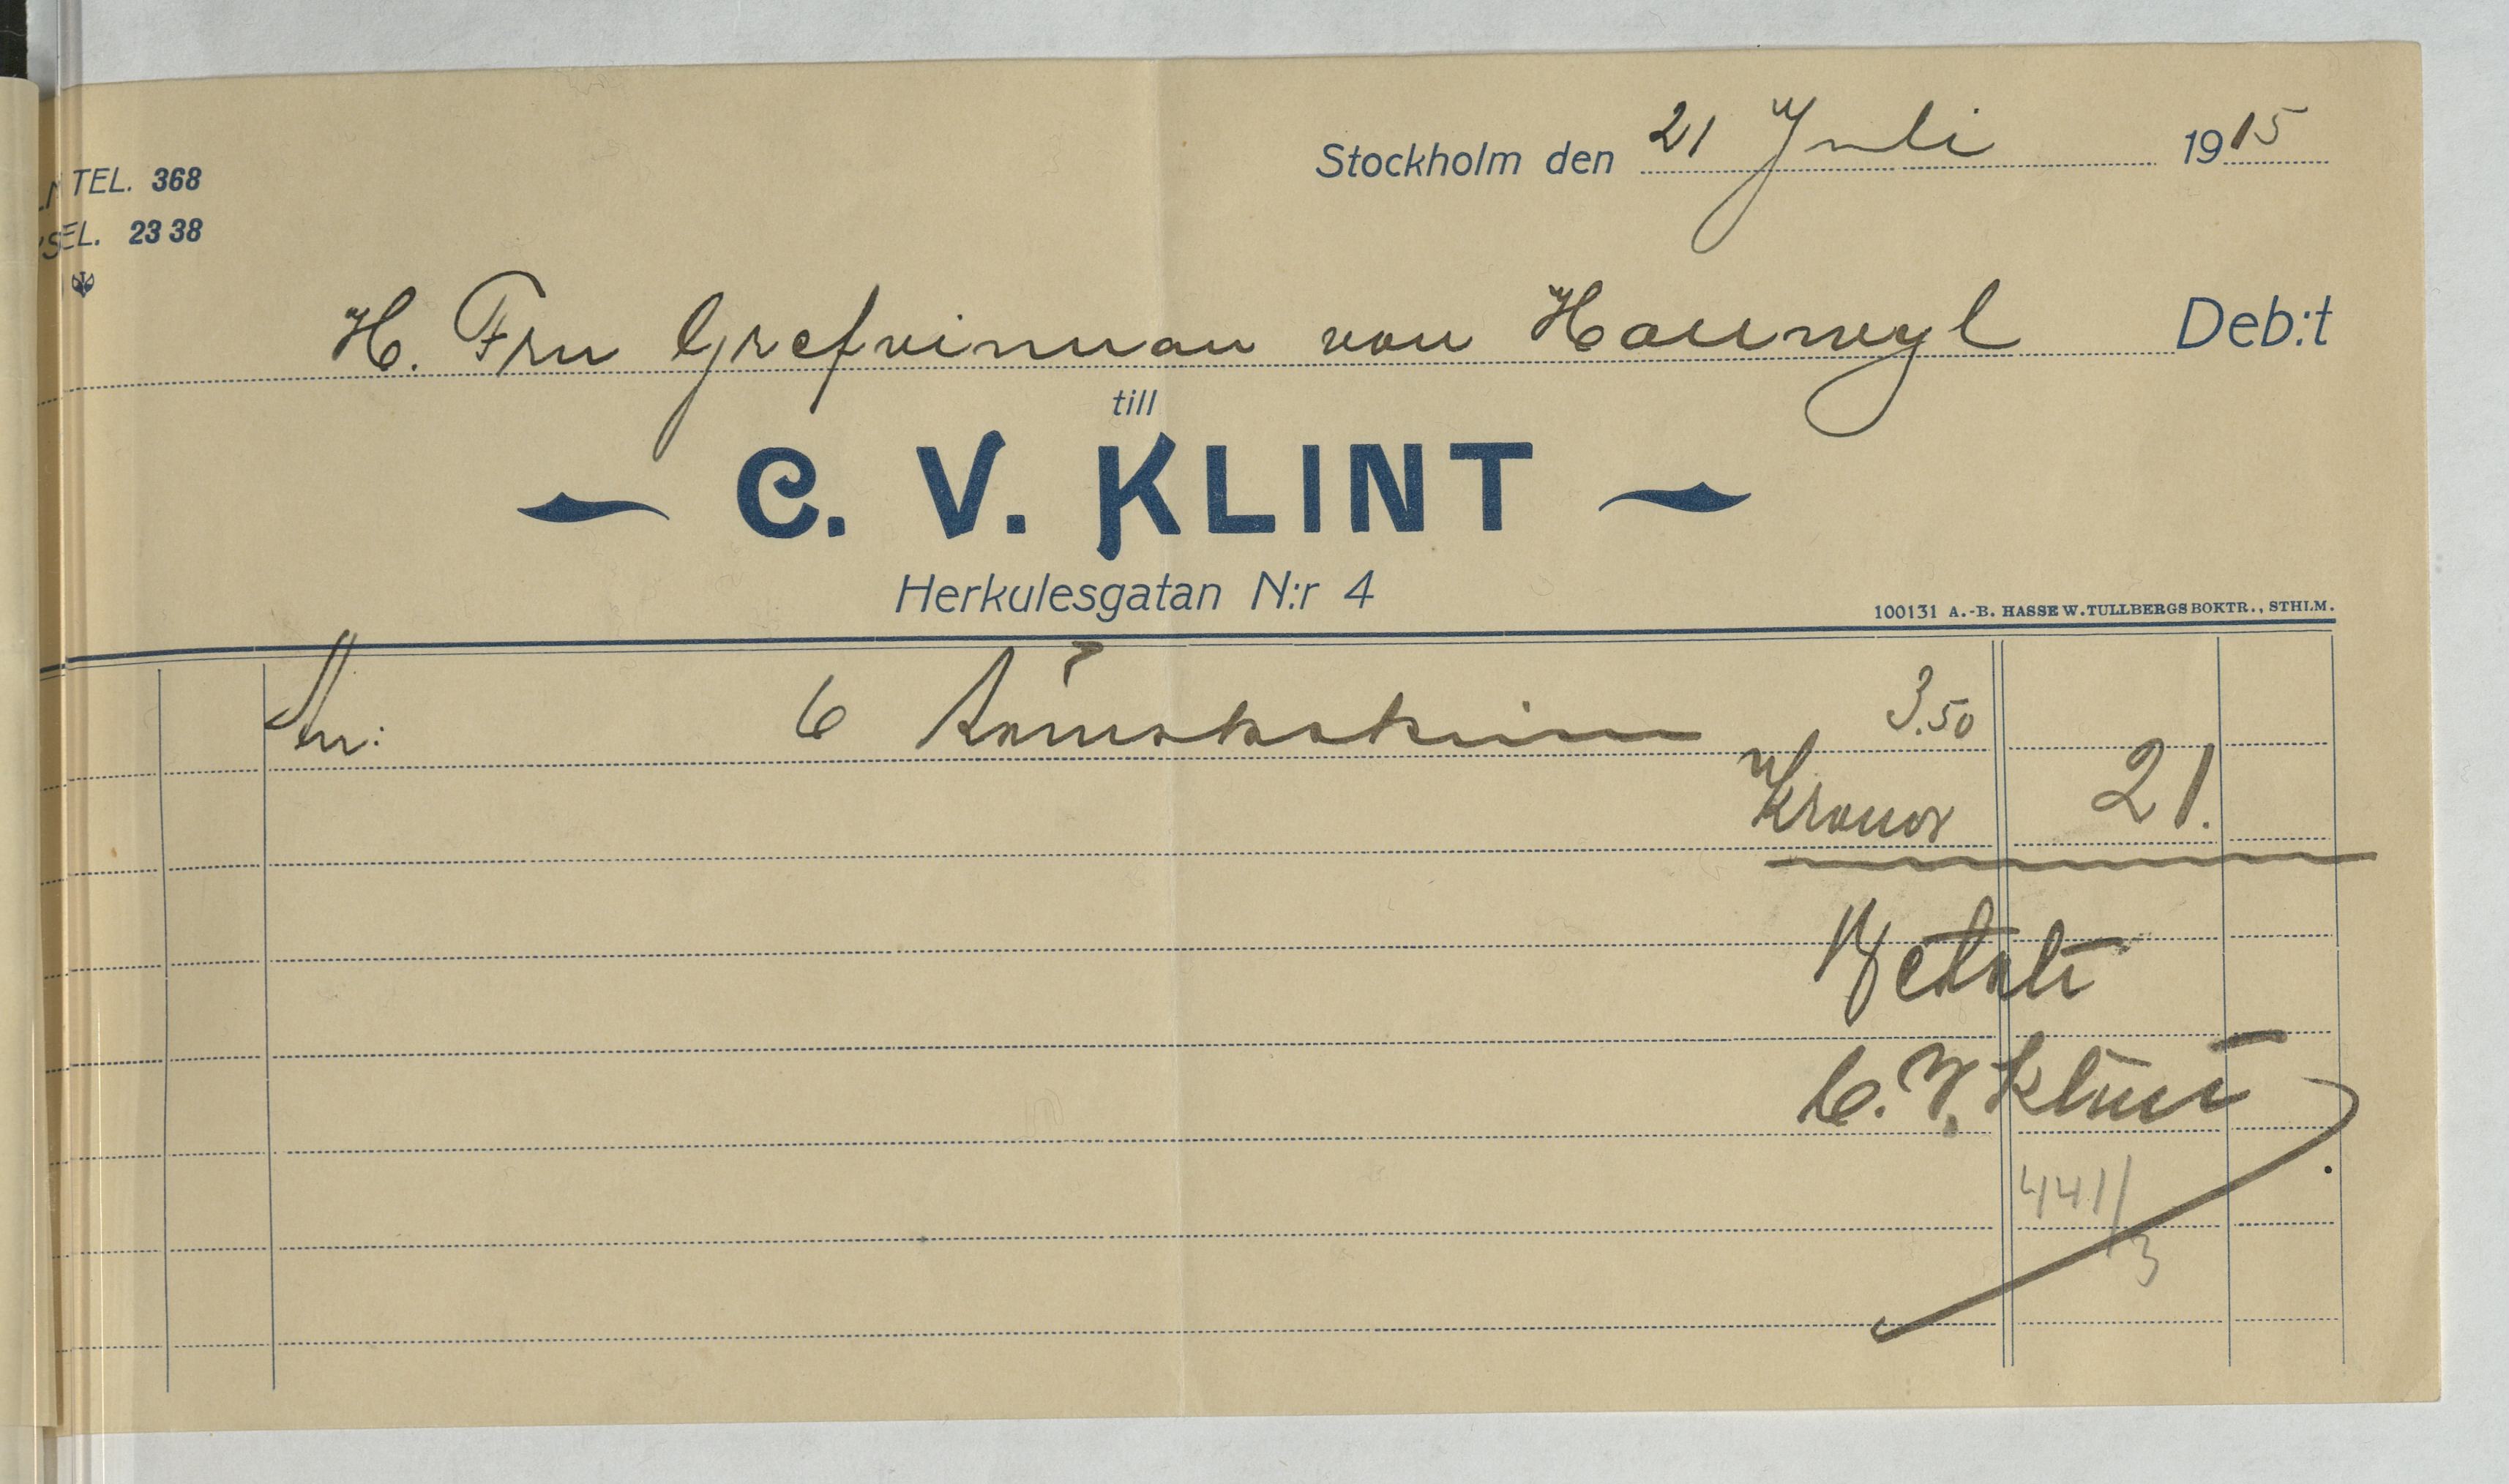 TEL. 368
EL. 23 38
Stockholm den 21 Juli 1915
H. Fru Grefvinnan von Hallwyl Deb:t
till
C. V. KLINT
Herkulesgatan N:r 4
100131 A.-B. HASSE W. TULLBERGS BOKTR., STHLM.
6 3.50
Kronor 21.
Betalt
C. V. Klint
441/3